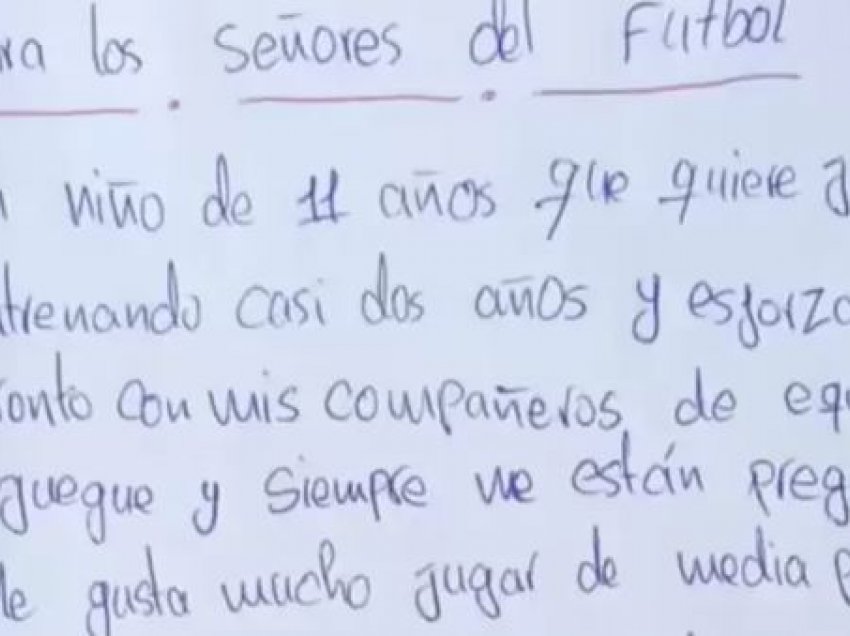 ra los Señores del Futbol
niño de 11 años que quiere
trenando casi dos años y esforza
onto con mis compañeros de eq
juegue y siempre me están preg
le gusta mucho jugar de media